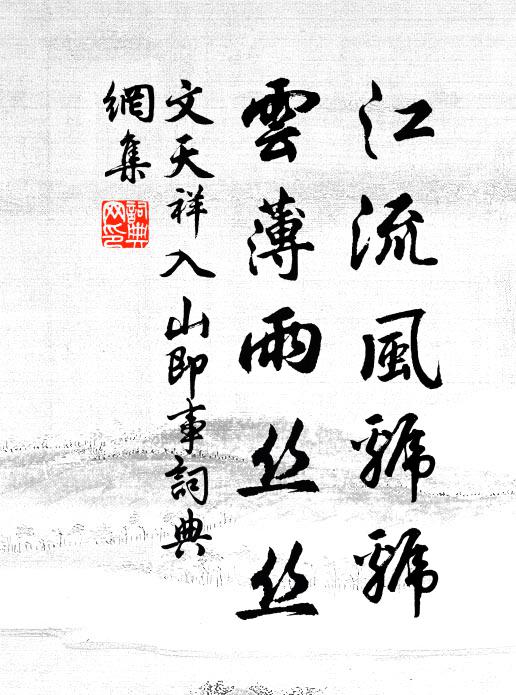 江流風號號
雲薄雨丝丝
文天祥入山即事詞典
網集
詞典
网印